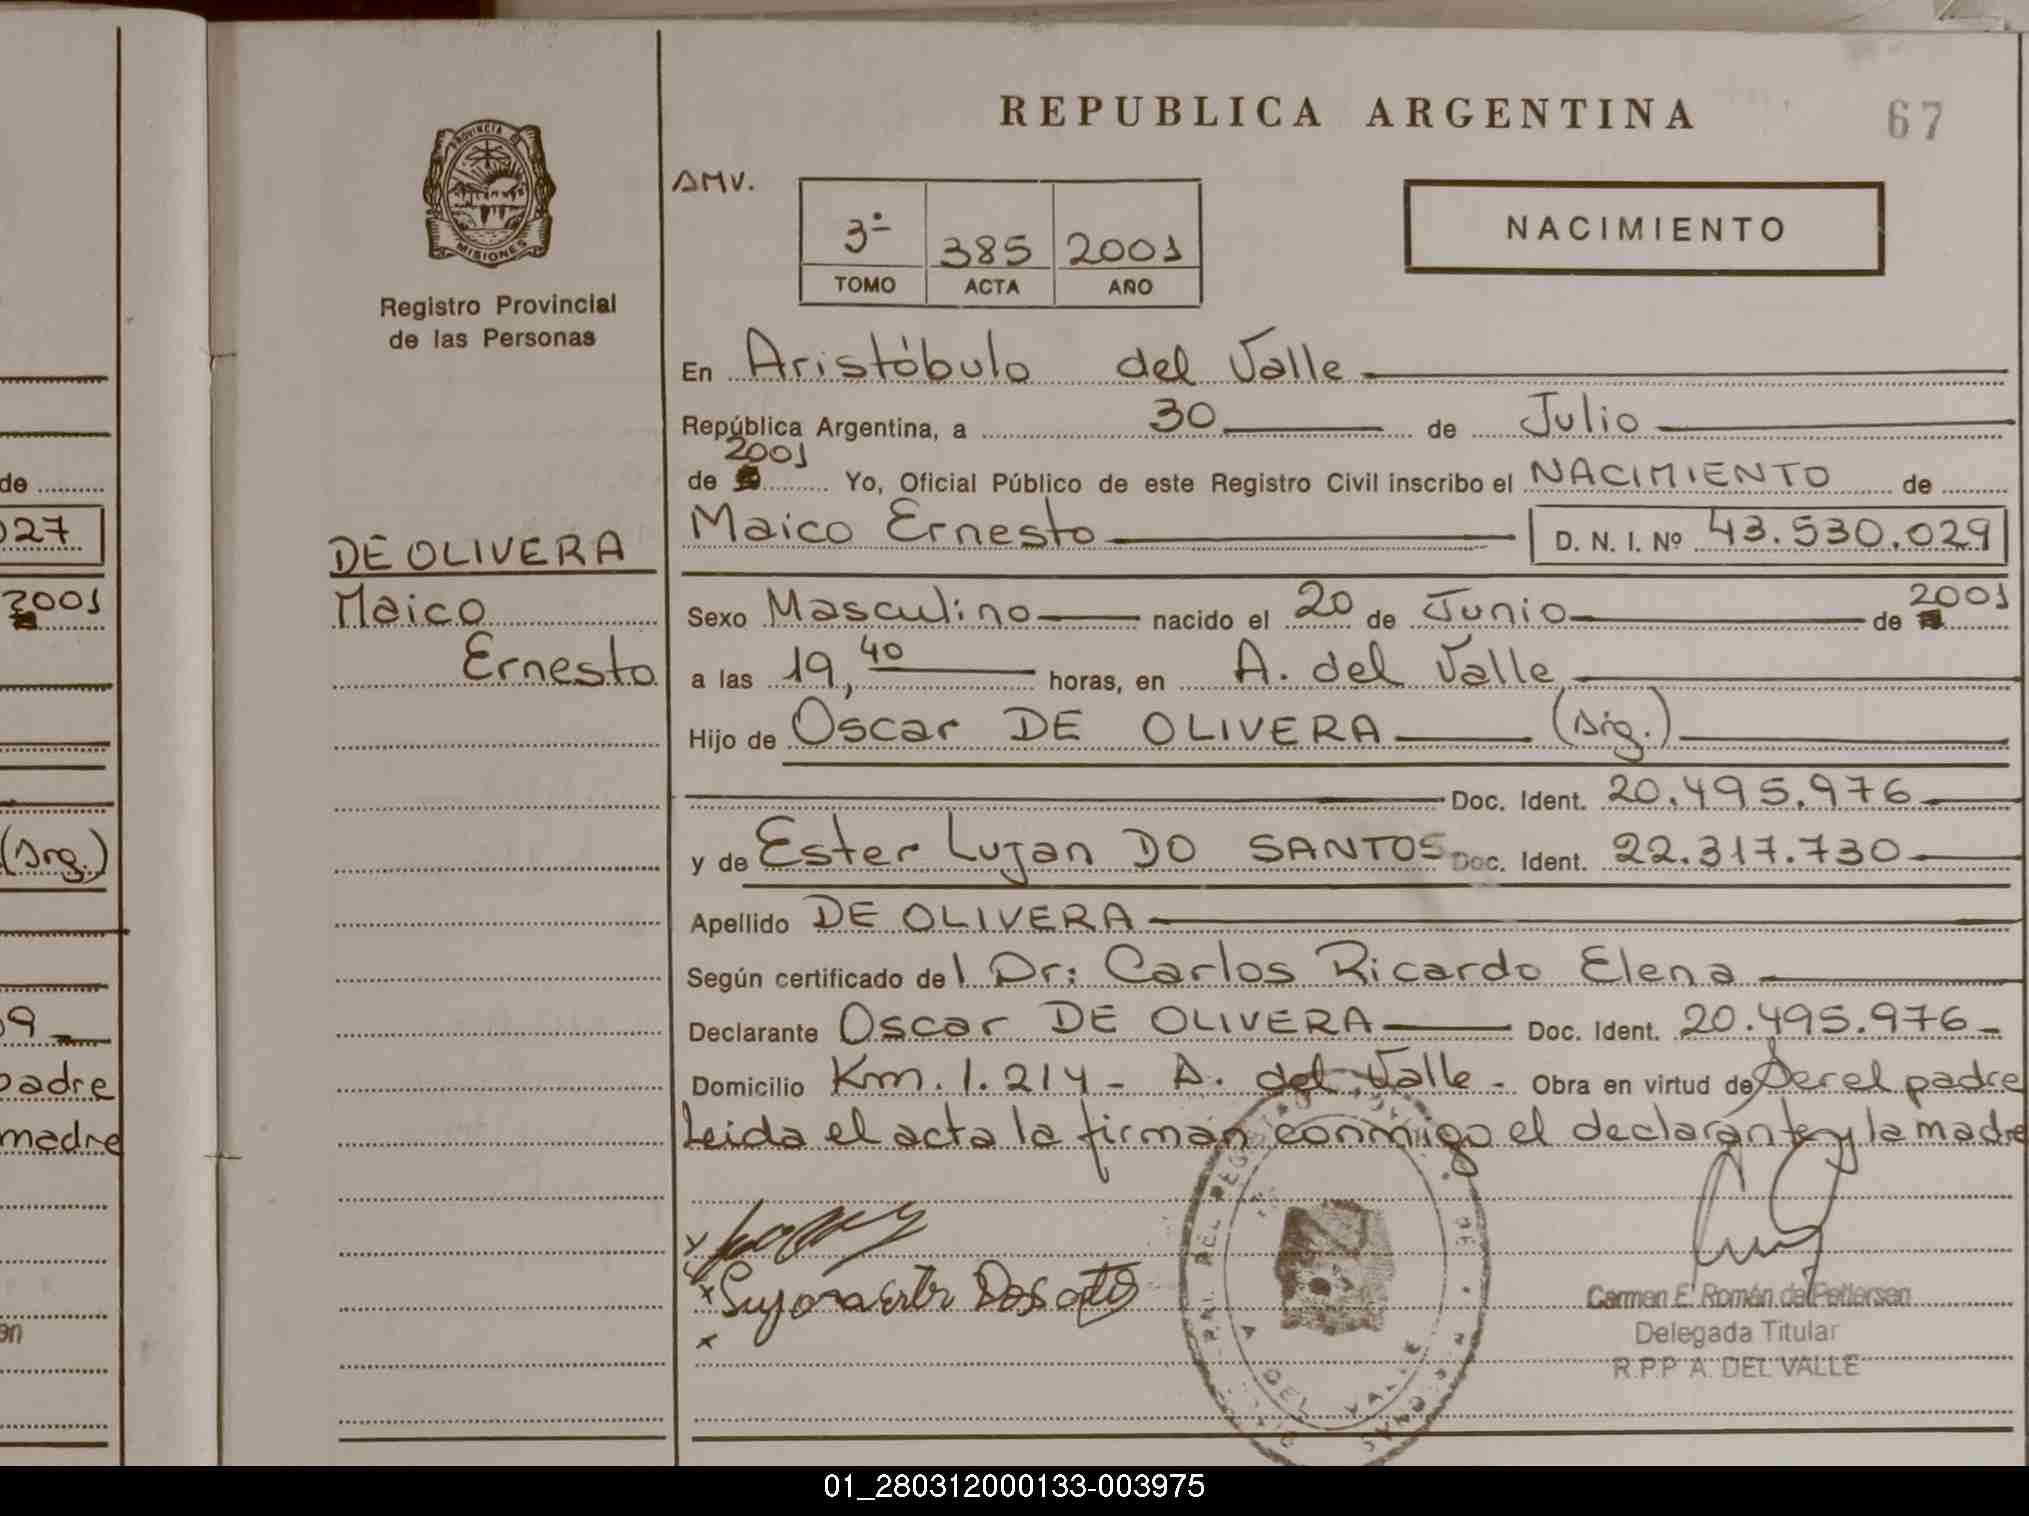 REPUBLICA ARGENTINA
67
PROVINCIA DE
MISIONES
Registro Provincial
de las Personas
AMV.
3º 385 2001
TOMO ACTA AÑO
NACIMIENTO
En Aristóbulo del Valle
República Argentina, a 30 de Julio
de 2001 Yo, Oficial Público de este Registro Civil inscribo el NACIMIENTO de
Maico Ernesto D. N. I. Nº 43.530.029
DE OLIVERA
Maico
Ernesto
Sexo Masculino nacido el 20 de Junio de 2001
a las 19,40 horas, en A. del Valle
Hijo de Oscar DE OLIVERA (Arg.)
Doc. Ident. 20.495.976
y de Ester Lujan DO SANTOS Doc. Ident. 22.317.730
Apellido DE OLIVERA
Según certificado del Dr: Carlos Ricardo Elena
Declarante Oscar DE OLIVERA Doc. Ident. 20.495.976
Domicilio Km. 1.214 - A. del Valle - Obra en virtud de Ser el padre
Leida el acta la firman conmigo el declarante y la madre
Carmen E. Román de Pettersen
Delegada Titular
R.P.P A. DEL VALLE
A DEL VALLE
de
027
2001
(Arg.)
09
padre
madre
en
01_280312000133-003975